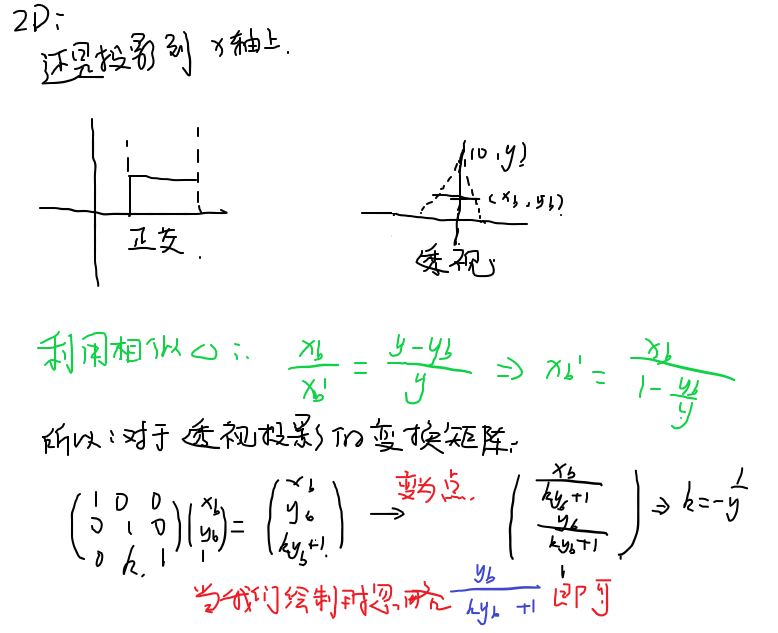 2D:
还是投影到 x轴上.
(0, y)
(x_b, y_b)
正交.
透视
利用相似△: x_b / x_b' = (y - y_b) / y ⇒ x_b' = x_b / (1 - y_b/y)
所以:对于透视投影的变换矩阵:
(1 0 0; 0 1 0; 0 k 1)(x_b; y_b; 1) = (x_b; y_b; ky_b+1) → 变为点. (x_b/(ky_b+1); y_b/(ky_b+1); 1) ⇒ k = -1/y
当我们绘制时忽略 y_b/(ky_b+1) 即可